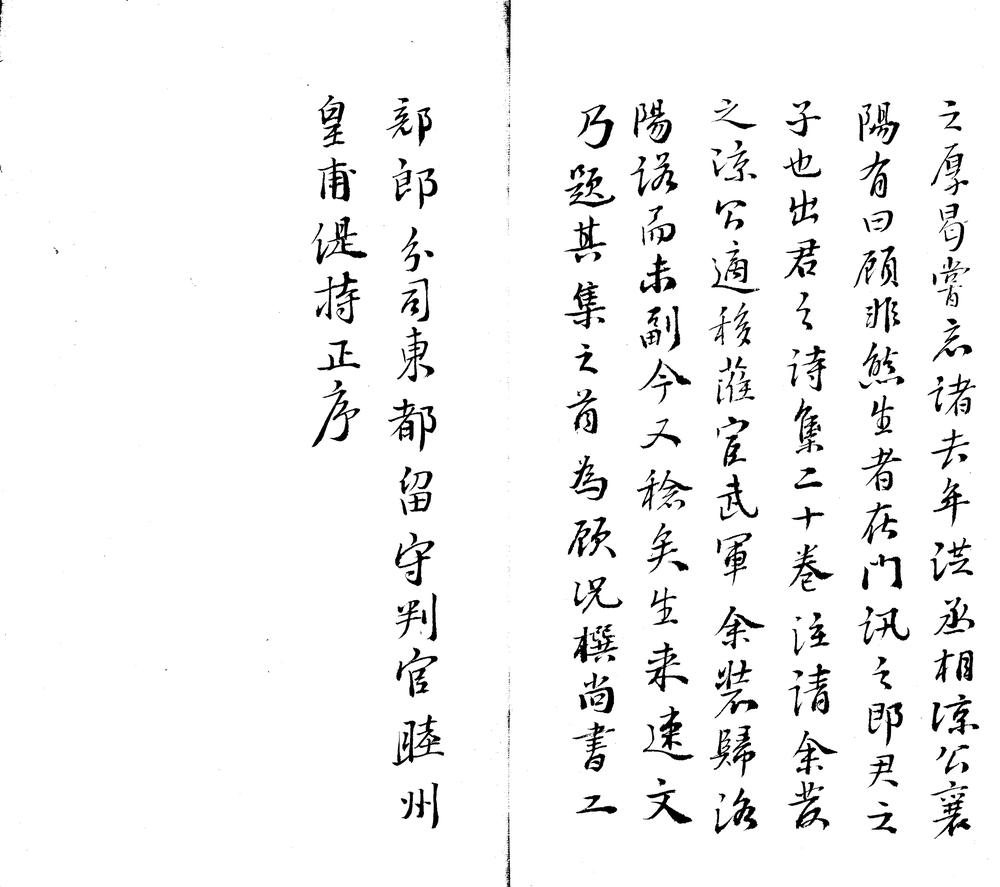 之厚曷嘗忘諸去年洪丞相涼公襄
陽有曰顧非熊生者在門訊之即尹之
子也出君之詩集二十卷注請余發
之涼公適移蓷宦武軍余裝歸洛
陽諾而未副今又稔矣生来速文
乃題其集之首為顧况撰尚書工
部郎分司東都留守判官睦州
皇甫湜持正序